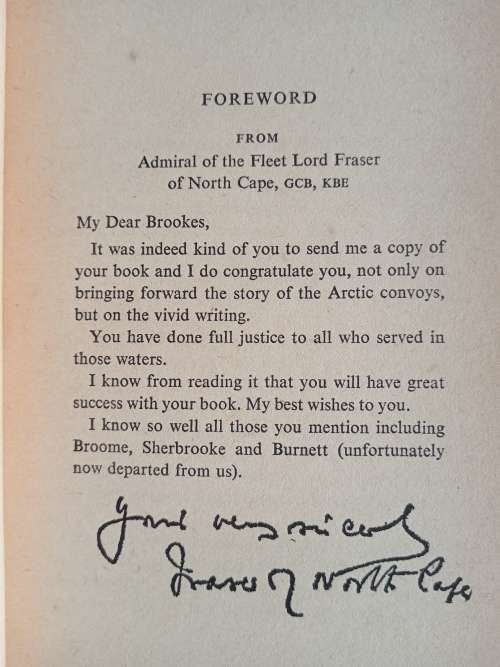 FOREWORD
FROM
Admiral of the Fleet Lord Fraser
of North Cape, GCB, KBE
My Dear Brookes,
It was indeed kind of you to send me a copy of
your book and I do congratulate you, not only on
bringing forward the story of the Arctic convoys,
but on the vivid writing.
You have done full justice to all who served in
those waters.
I know from reading it that you will have great
success with your book. My best wishes to you.
I know so well all those you mention including
Broome, Sherbrooke and Burnett (unfortunately
now departed from us).
Yours very sincerely
Fraser of North Cape